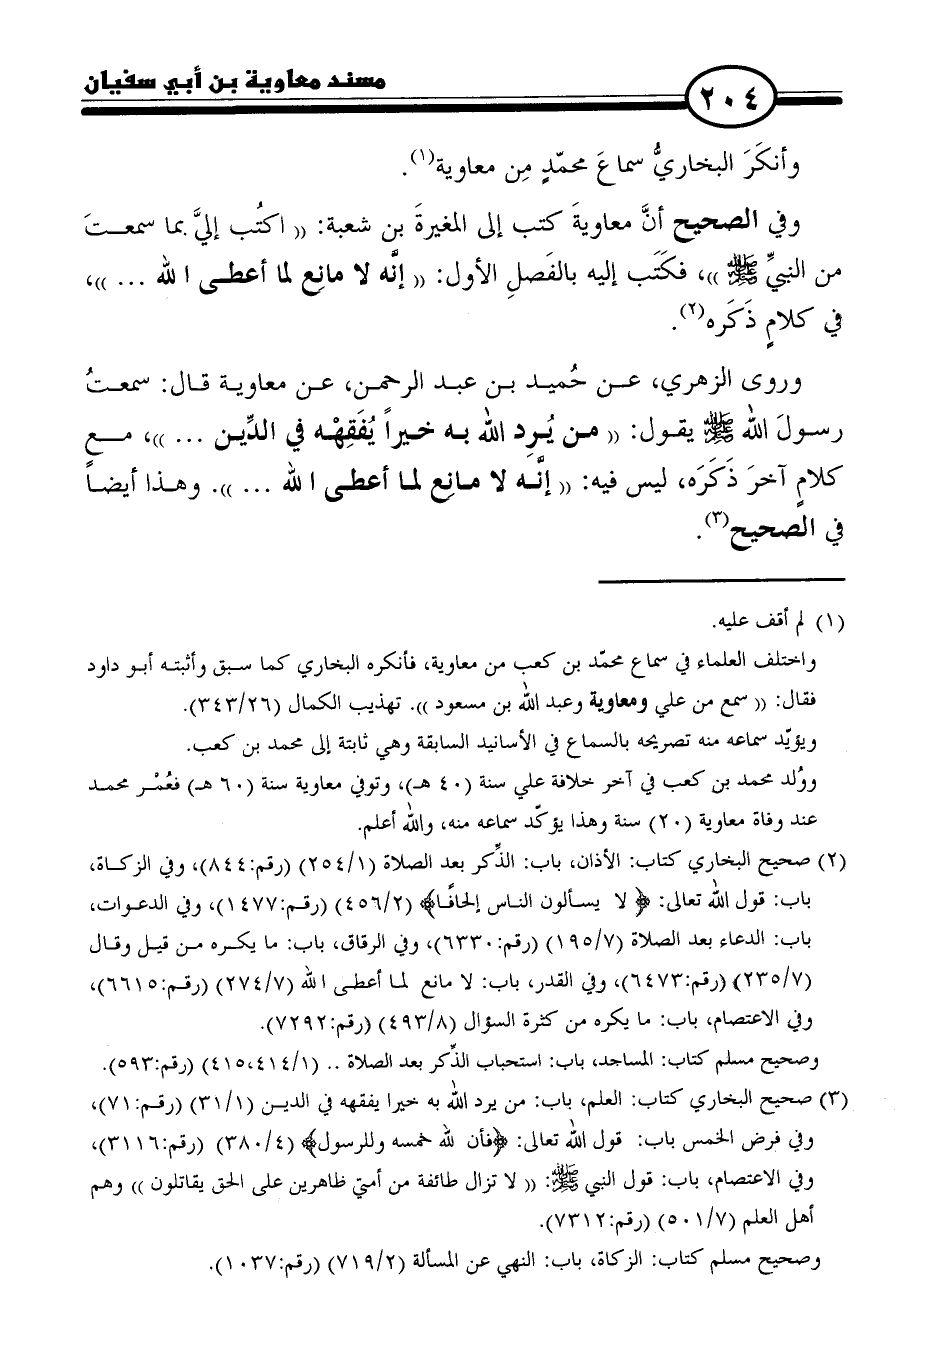 مسند معاوية بن أبي سفيان
٢٠٤
وأنكَرَ البخاريُّ سماعَ محمّدٍ مِن معاوية(١).
وفي الصحيح أنَّ معاويةَ كتب إلى المغيرةَ بن شعبة: (( اكتُب إليَّ بما سمعـتَ
من النبيِّ ﷺ ))، فكَتَب إليه بالفَصلِ الأول: (( إنَّه لا مانِع لما أعطـى الله ... ))،
في كلامٍ ذَكَره(٢).
وروى الزهري، عـن حُميد بـن عبـد الرحمـن، عـن معاويـة قـال: سمعـتُ
رسولَ الله ﷺ يقول: (( مـن يُـرِد الله بـه خـيراً يُفَقِهْـه في الدِّيـن ... ))، مـع
كلامٍ آخرَ ذَكَرَه، ليس فيه: (( إنَّـه لا مانِـع لمـا أعطـى الله ... )). وهـذا أيضـاً
في الصحيح(٣).
(١) لم أقف عليه.
واختلف العلماء في سماع محمّد بن كعب من معاوية، فأنكره البخاري كما سبق وأثبته أبو داود
فقال: (( سمع من علي ومعاوية وعبد الله بن مسعود )). تهذيب الكمال (٣٤٣/٢٦).
ويؤيّد سماعه منه تصريحه بالسماع في الأسانيد السابقة وهي ثابتة إلى محمد بن كعب.
ووُلد محمد بن كعب في آخر خلافة علي سنة (٤٠ هـ)، وتوفي معاوية سنة (٦٠ هـ) فعُمْـر محمـد
عند وفاة معاوية (٢٠) سنة وهذا يؤكّد سماعه منه، والله أعلم.
(٢) صحيح البخاري كتاب: الأذان، باب: الذِّكر بعد الصلاة (٢٥٤/١) (رقم:٨٤٤)، وفي الزكـاة،
باب: قول الله تعالى: ﴿ لا يسألون الناس إلحافًا﴾ (٤٥٦/٢) (رقـم:١٤٧٧)، وفي الدعـوات،
باب: الدعاء بعد الصلاة (١٩٥/٧) (رقم:٦٣٣٠)، وفي الرقاق، باب: ما يكـره مـن قيـل وقـال
(٢٣٥/٧) (رقم:٦٤٧٣)، وفي القدر، باب: لا مانع لمـا أعطـى الله (٢٧٤/٧) (رقـم:٦٦١٥)،
وفي الاعتصام، باب: ما يكره من كثرة السؤال (٤٩٣/٨) (رقم:٧٢٩٢).
وصحيح مسلم كتاب: المساجد، باب: استحباب الذِّكر بعد الصلاة .. (٤١٥،٤١٤/١) (رقم:٥٩٣).
(٣) صحيح البخاري كتاب: العلم، باب: من يرد الله به خيرا يفقهه في الديـن (٣١/١) (رقـم:٧١)،
وفي فرض الخمس باب: قول الله تعالى: ﴿فأن لله خمسه وللرسول﴾ (٣٨٠/٤) (رقم:٣١١٦)،
وفي الاعتصام، باب: قول النبي ﷺ: (( لا تزال طائفة من أمتي ظاهرين على الحق يقاتلون )) وهم
أهل العلم (٥٠١/٧) (رقم:٧٣١٢).
وصحيح مسلم كتاب: الزكاة، باب: النهي عن المسألة (٧١٩/٢) (رقم:١٠٣٧).